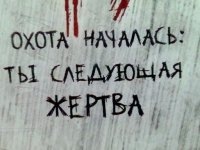 ОХОТА НАЧАЛАСЬ:
ТЫ СЛЕДУЮЩАЯ
ЖЕРТВА